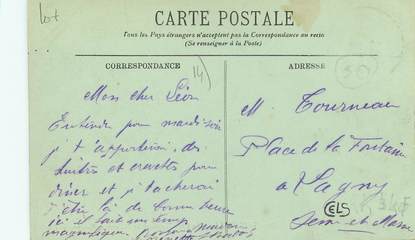 lot
CARTE POSTALE
Tous les Pays étrangers n'acceptent pas la Correspondance au recto
(Se renseigner à la Poste)
CORRESPONDANCE
14
ADRESSE
50
Mon cher Léon
Entendu pour mardi soir
je t'apporterai des
huîtres et crevettes pour
dîner et je tacherai
d'être là de bonne heure
ici il fait un temps
magnifique
M. Tourneau
Place de la Fontaine
à Lagny
Seine et Marne
CELS